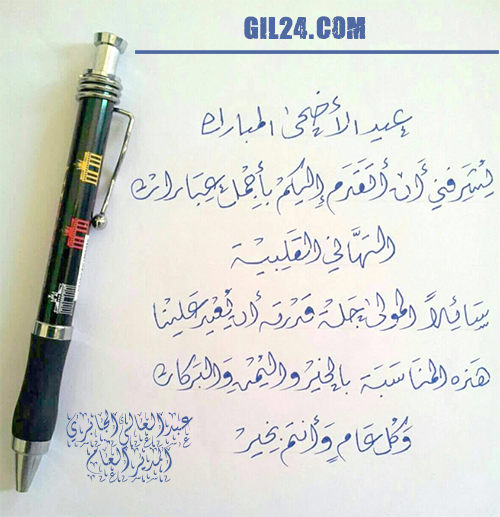 GIL24.COM
عيد الأضحى المبارك
يُشرفني أن أتقدم إليكم بأجمل عبارات
التهاني القلبية
سائلاً المولى جلة قدرته أن يُعيد علينا
هذه المناسبة بالخير واليمن والبركات
وكل عام وأنتم بخير
عبد العالي الجابري
المدير العام